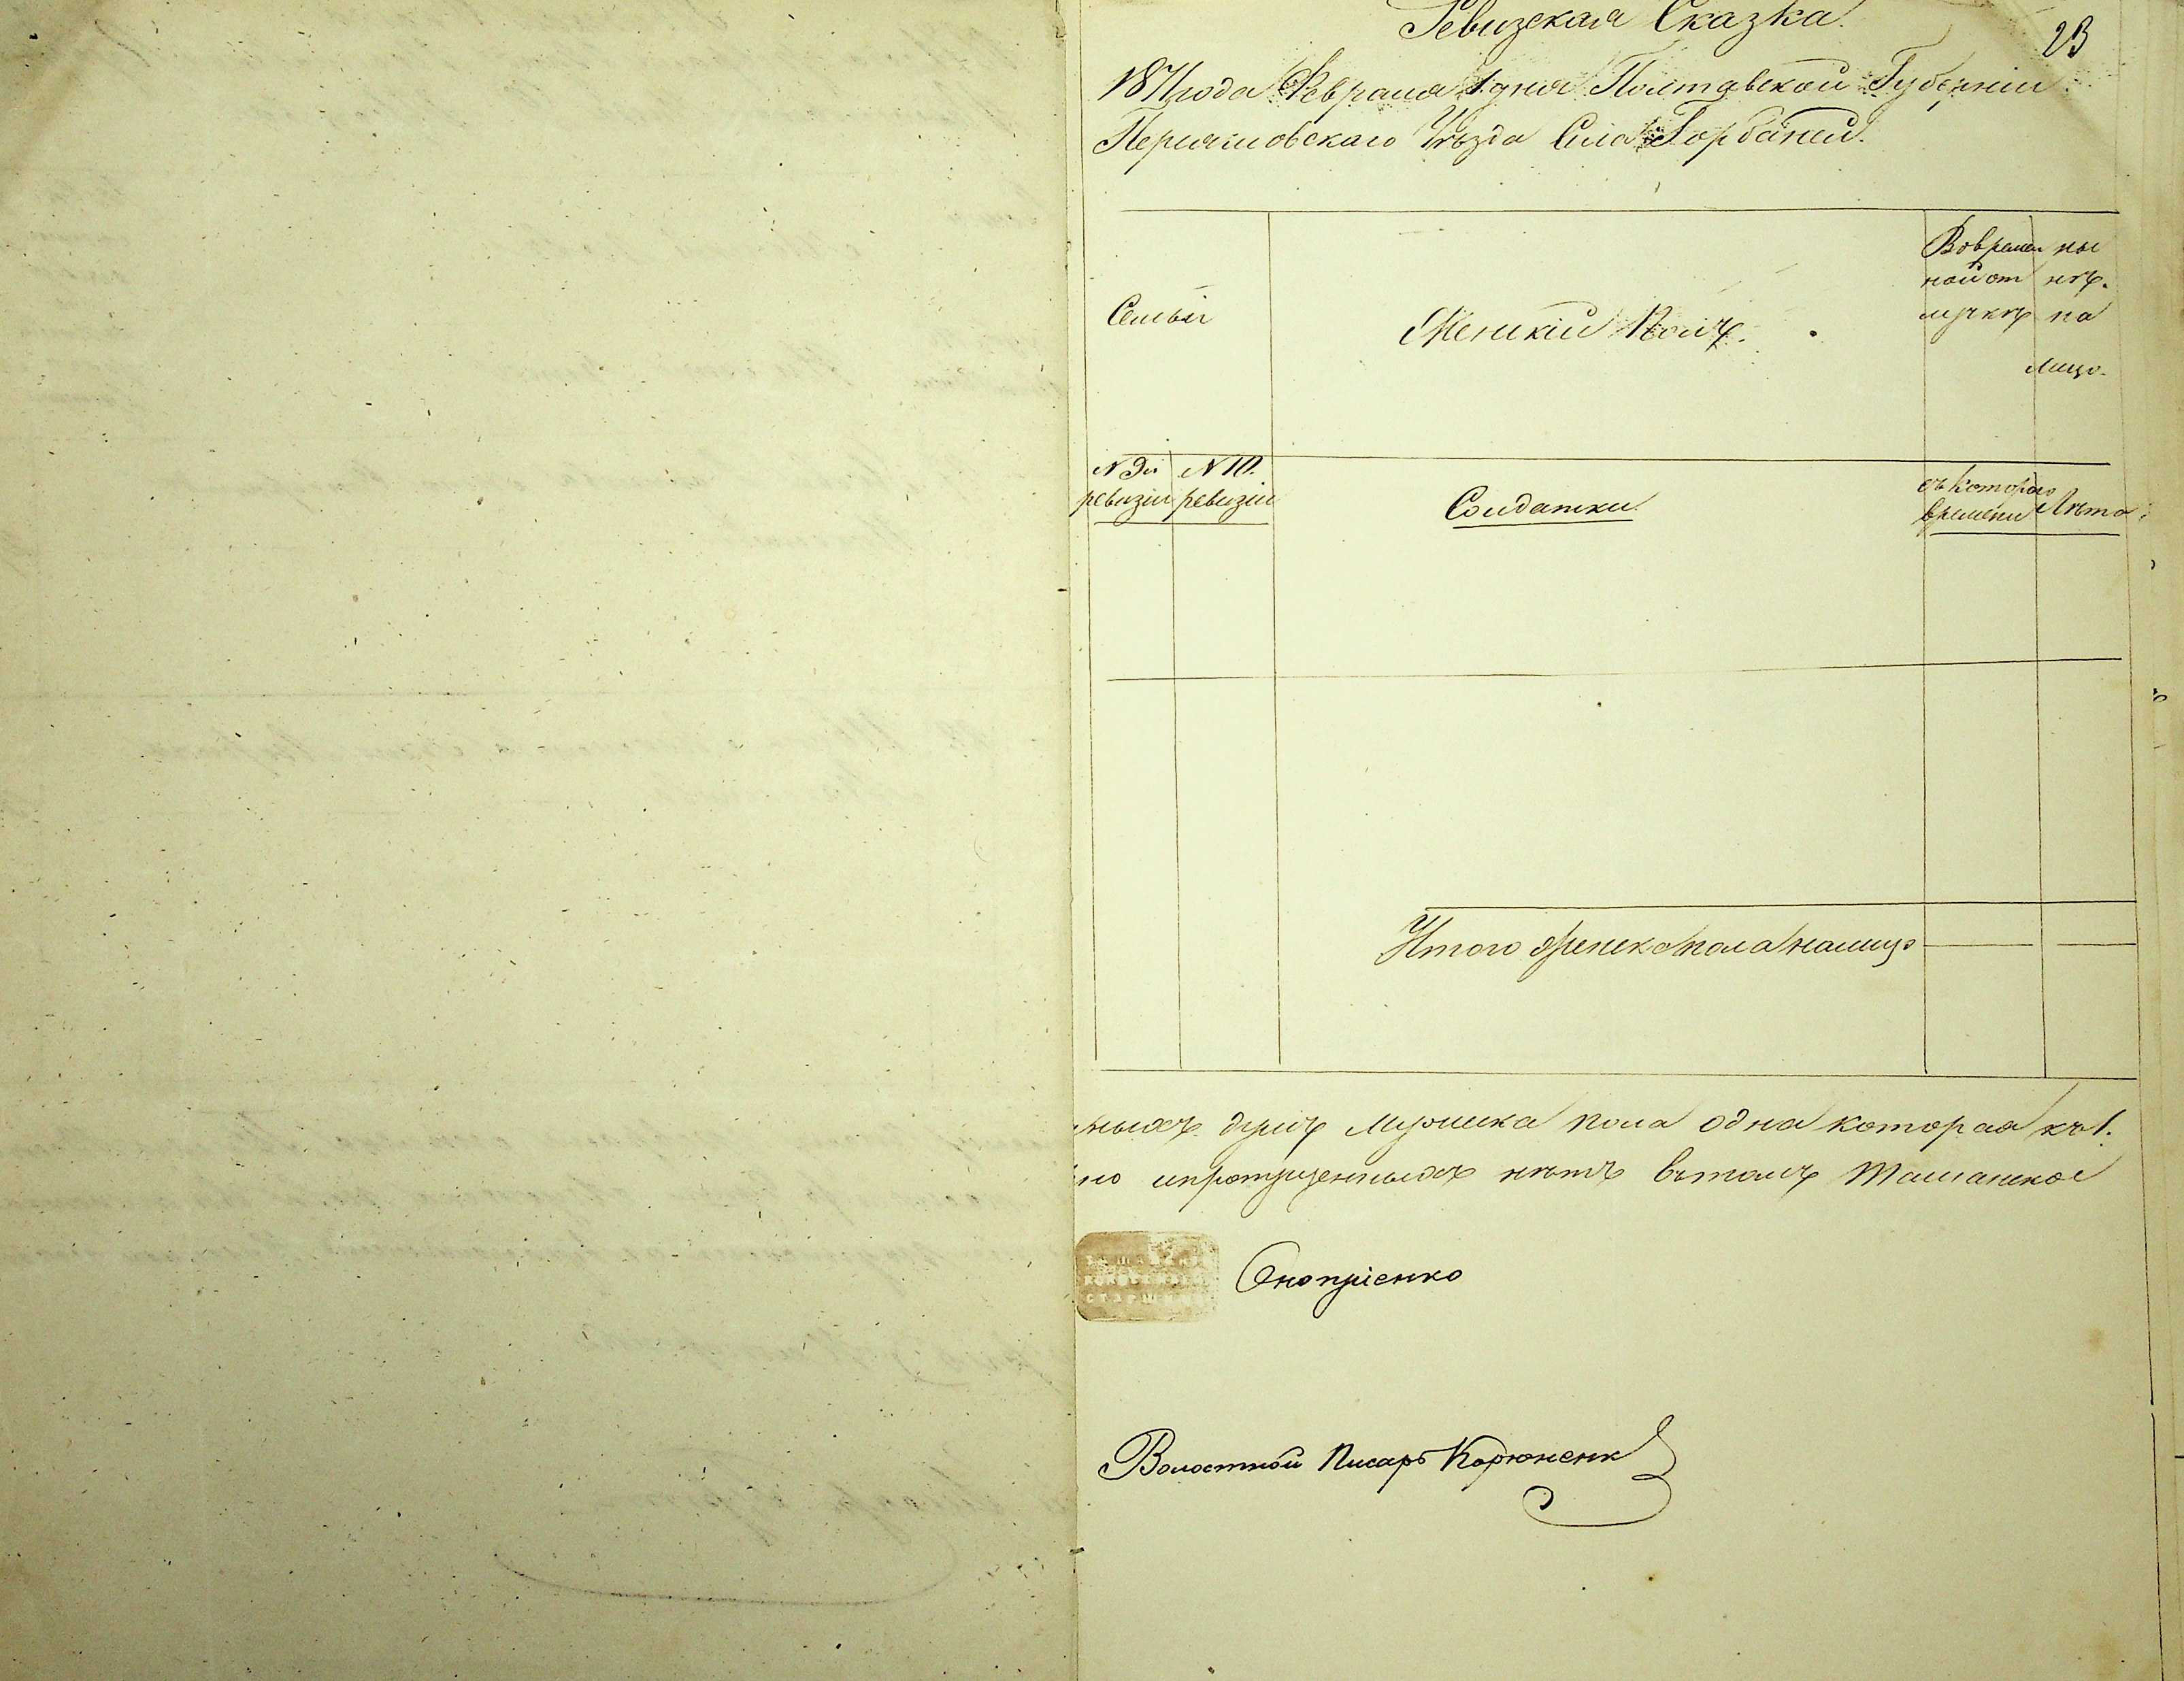 Ревизская Сказка.
23
1871 года Февраля 1 дня Полтавской Губерніи
Переяславскаго Уѣзда Села Горбаней.
Семьи
Женскій Полъ.
Во времен
ной от
лучкѣ
ны
нѣ.
на
лицо.
N 9й
ревизіи
N 10.
ревизіи
Солдатки.
съ котораго
времени
Лѣта
Итого женска пола налицо
ныхъ душъ мужеска пола одна которая къ 1.
но и пропущенныхъ нѣтъ въ томъ Ташанское
СТАРШИНЫ
Оноприенко
Волостной Писарь Корюненко